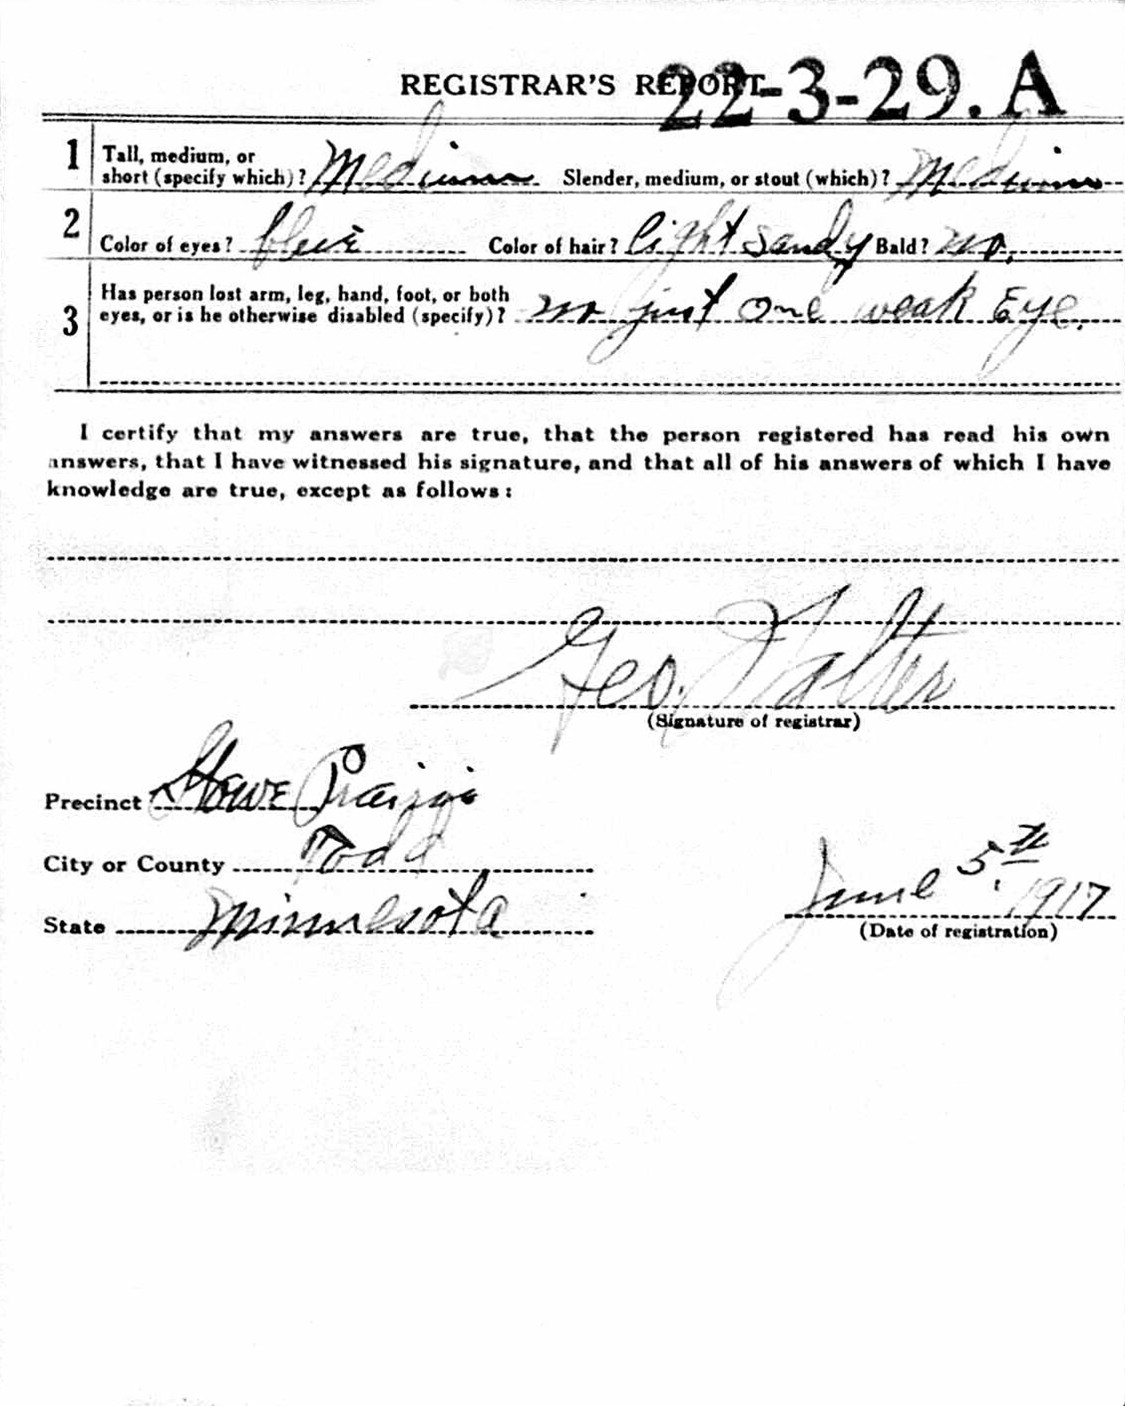 REGISTRAR'S REPORT 22-3-29. A
1 Tall, medium, or short (specify which)? Medium Slender, medium, or stout (which)? Medium
2 Color of eyes? blue Color of hair? light sandy Bald? no.
3 Has person lost arm, leg, hand, foot, or both
eyes, or is he otherwise disabled (specify)? no just one weak Eye.
I certify that my answers are true, that the person registered has read his own
answers, that I have witnessed his signature, and that all of his answers of which I have
knowledge are true, except as follows:
Geo. Walter
(Signature of registrar)
Precinct Stowe Prairie
City or County Todd
State Minnesota
June 5th 1917
(Date of registration)